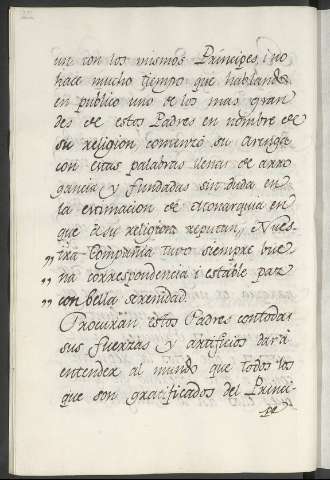 un con los mismos Principes, i no
hace mucho tiempo que hablando
en publico uno de los mas gran
des de estos Padres en nombre de
su religion comenzó su arenga
con estas palabras llenas de arro
gancia y fundadas sin duda en
la estimacion de Monarquia en
que à su religion reputan, Nues-
„ tra Compañia tuvo siempre bue-
„ na correspondencia i estable paz
„ con bella serenidad.
Procuran estos Padres con todas
sus fuerzas y artificios dar à
entender al mundo que todos los
que son gratificados del Princi-
pe